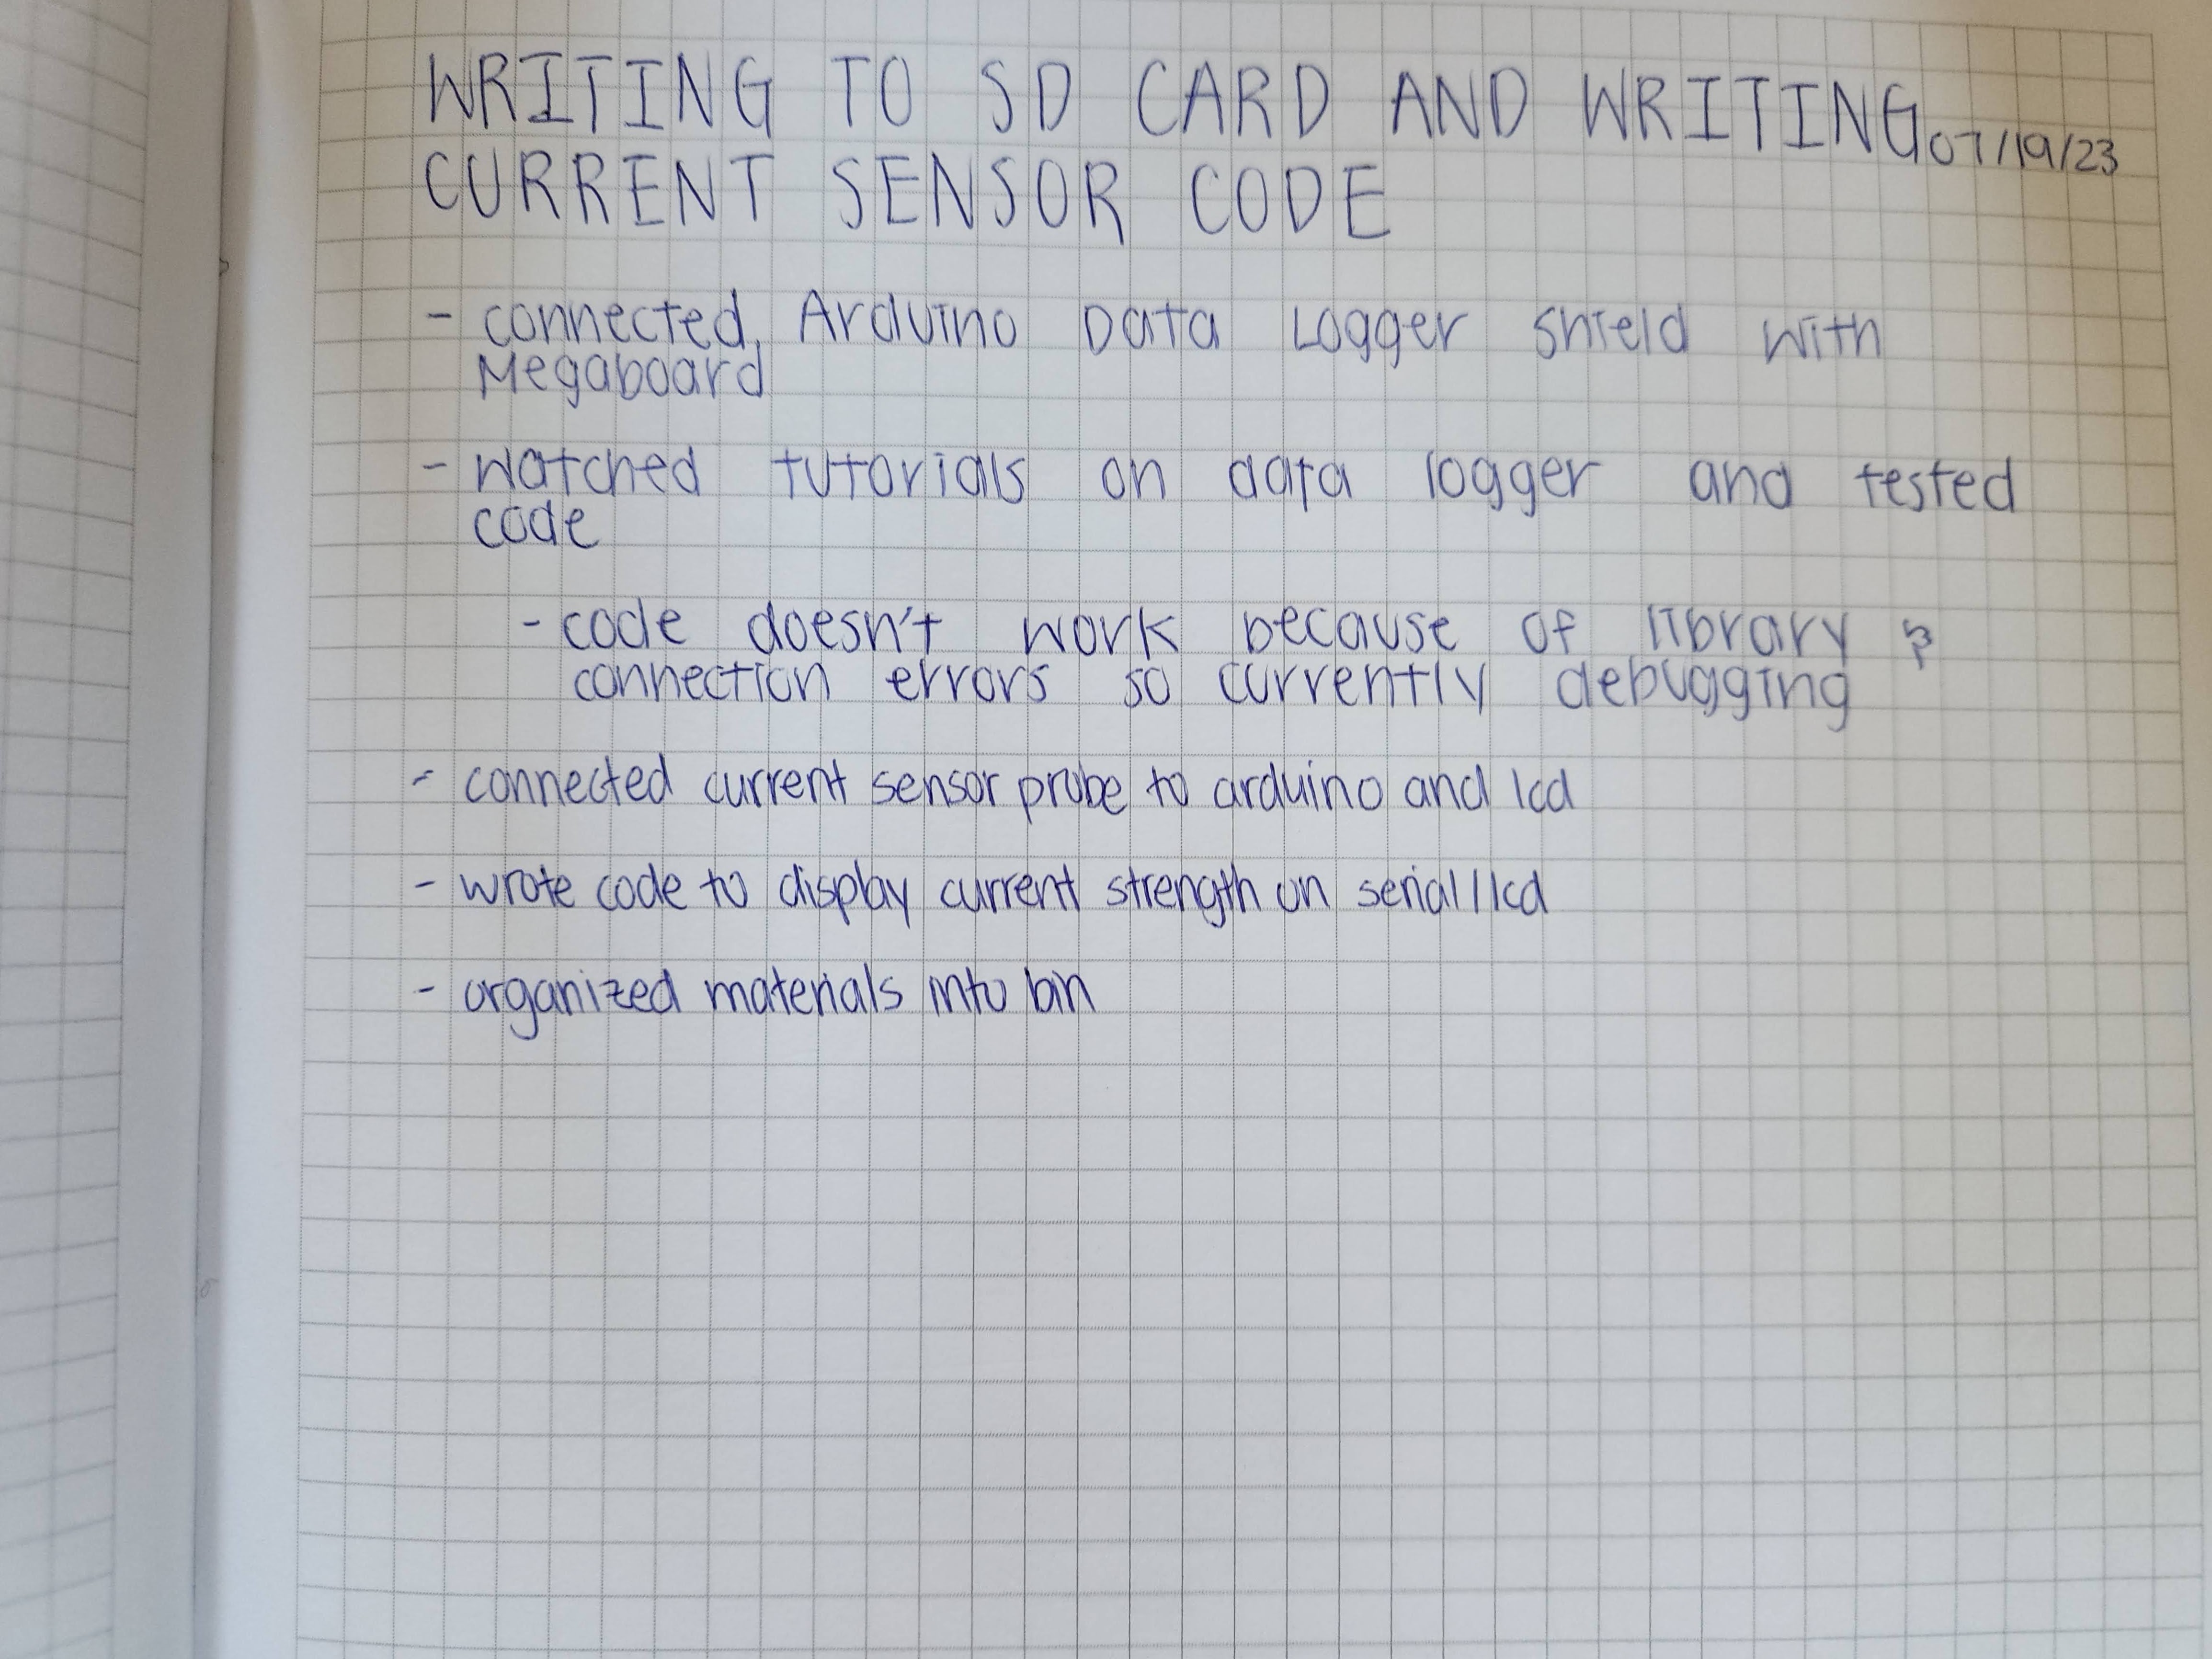 WRITING TO SD CARD AND WRITING 07/19/23
CURRENT SENSOR CODE
- connected Arduino Data Logger shield with
Megaboard
- Watched tutorials on data logger and tested
code
- code doesn't work because of library &
connection errors so currently debugging
- connected current sensor probe to arduino and lcd
- wrote code to display current strength on serial/lcd
- organized materials into bin